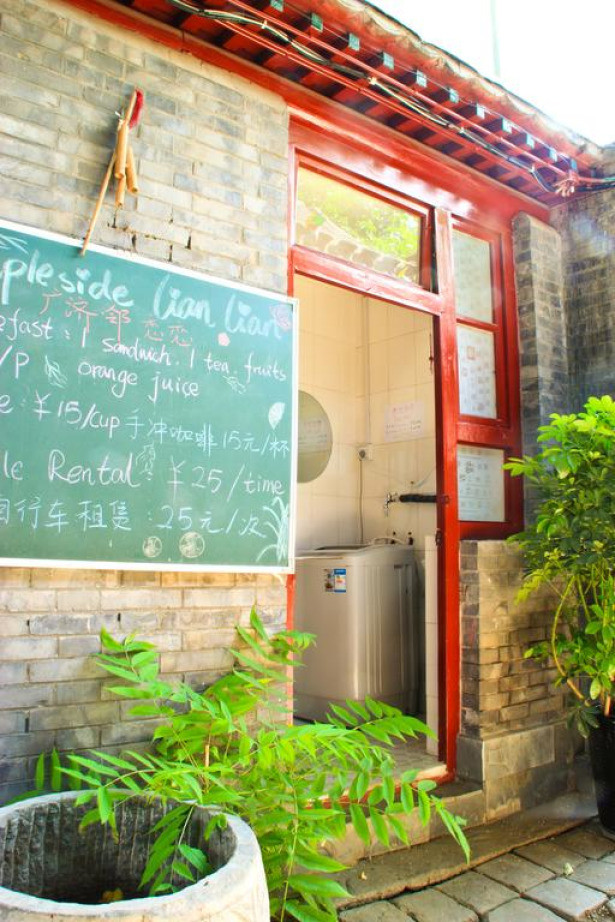 pleside lian lian
广济邻 恋恋
efast : 1 sandwich . 1 tea . fruits
/P orange juice
e : ¥15/cup 手冲咖啡 15元/杯
le Rental : ¥25/time
自行车租赁 : 25元/次